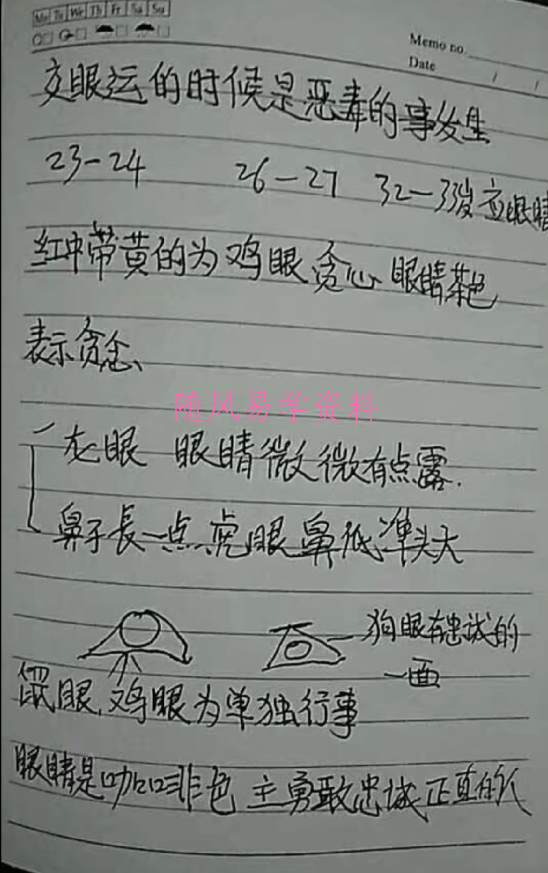 Mo Tu We Th Fr Sa Su
Memo no.
Date / /
交眼运的时候是恶毒的事发生
23-24 26-27 32-33岁 应眼睛
红中带黄的为鸡眼贪心 眼睛茶色
表示贪念、
随风易学资料
龙眼 眼睛微微有点露.
鼻子長一点虎眼鼻低準头大
狗眼有忠诚的
一面
鼠眼,鸡眼为单独行事
眼睛是咖啡色 主勇敢忠诚正直的人